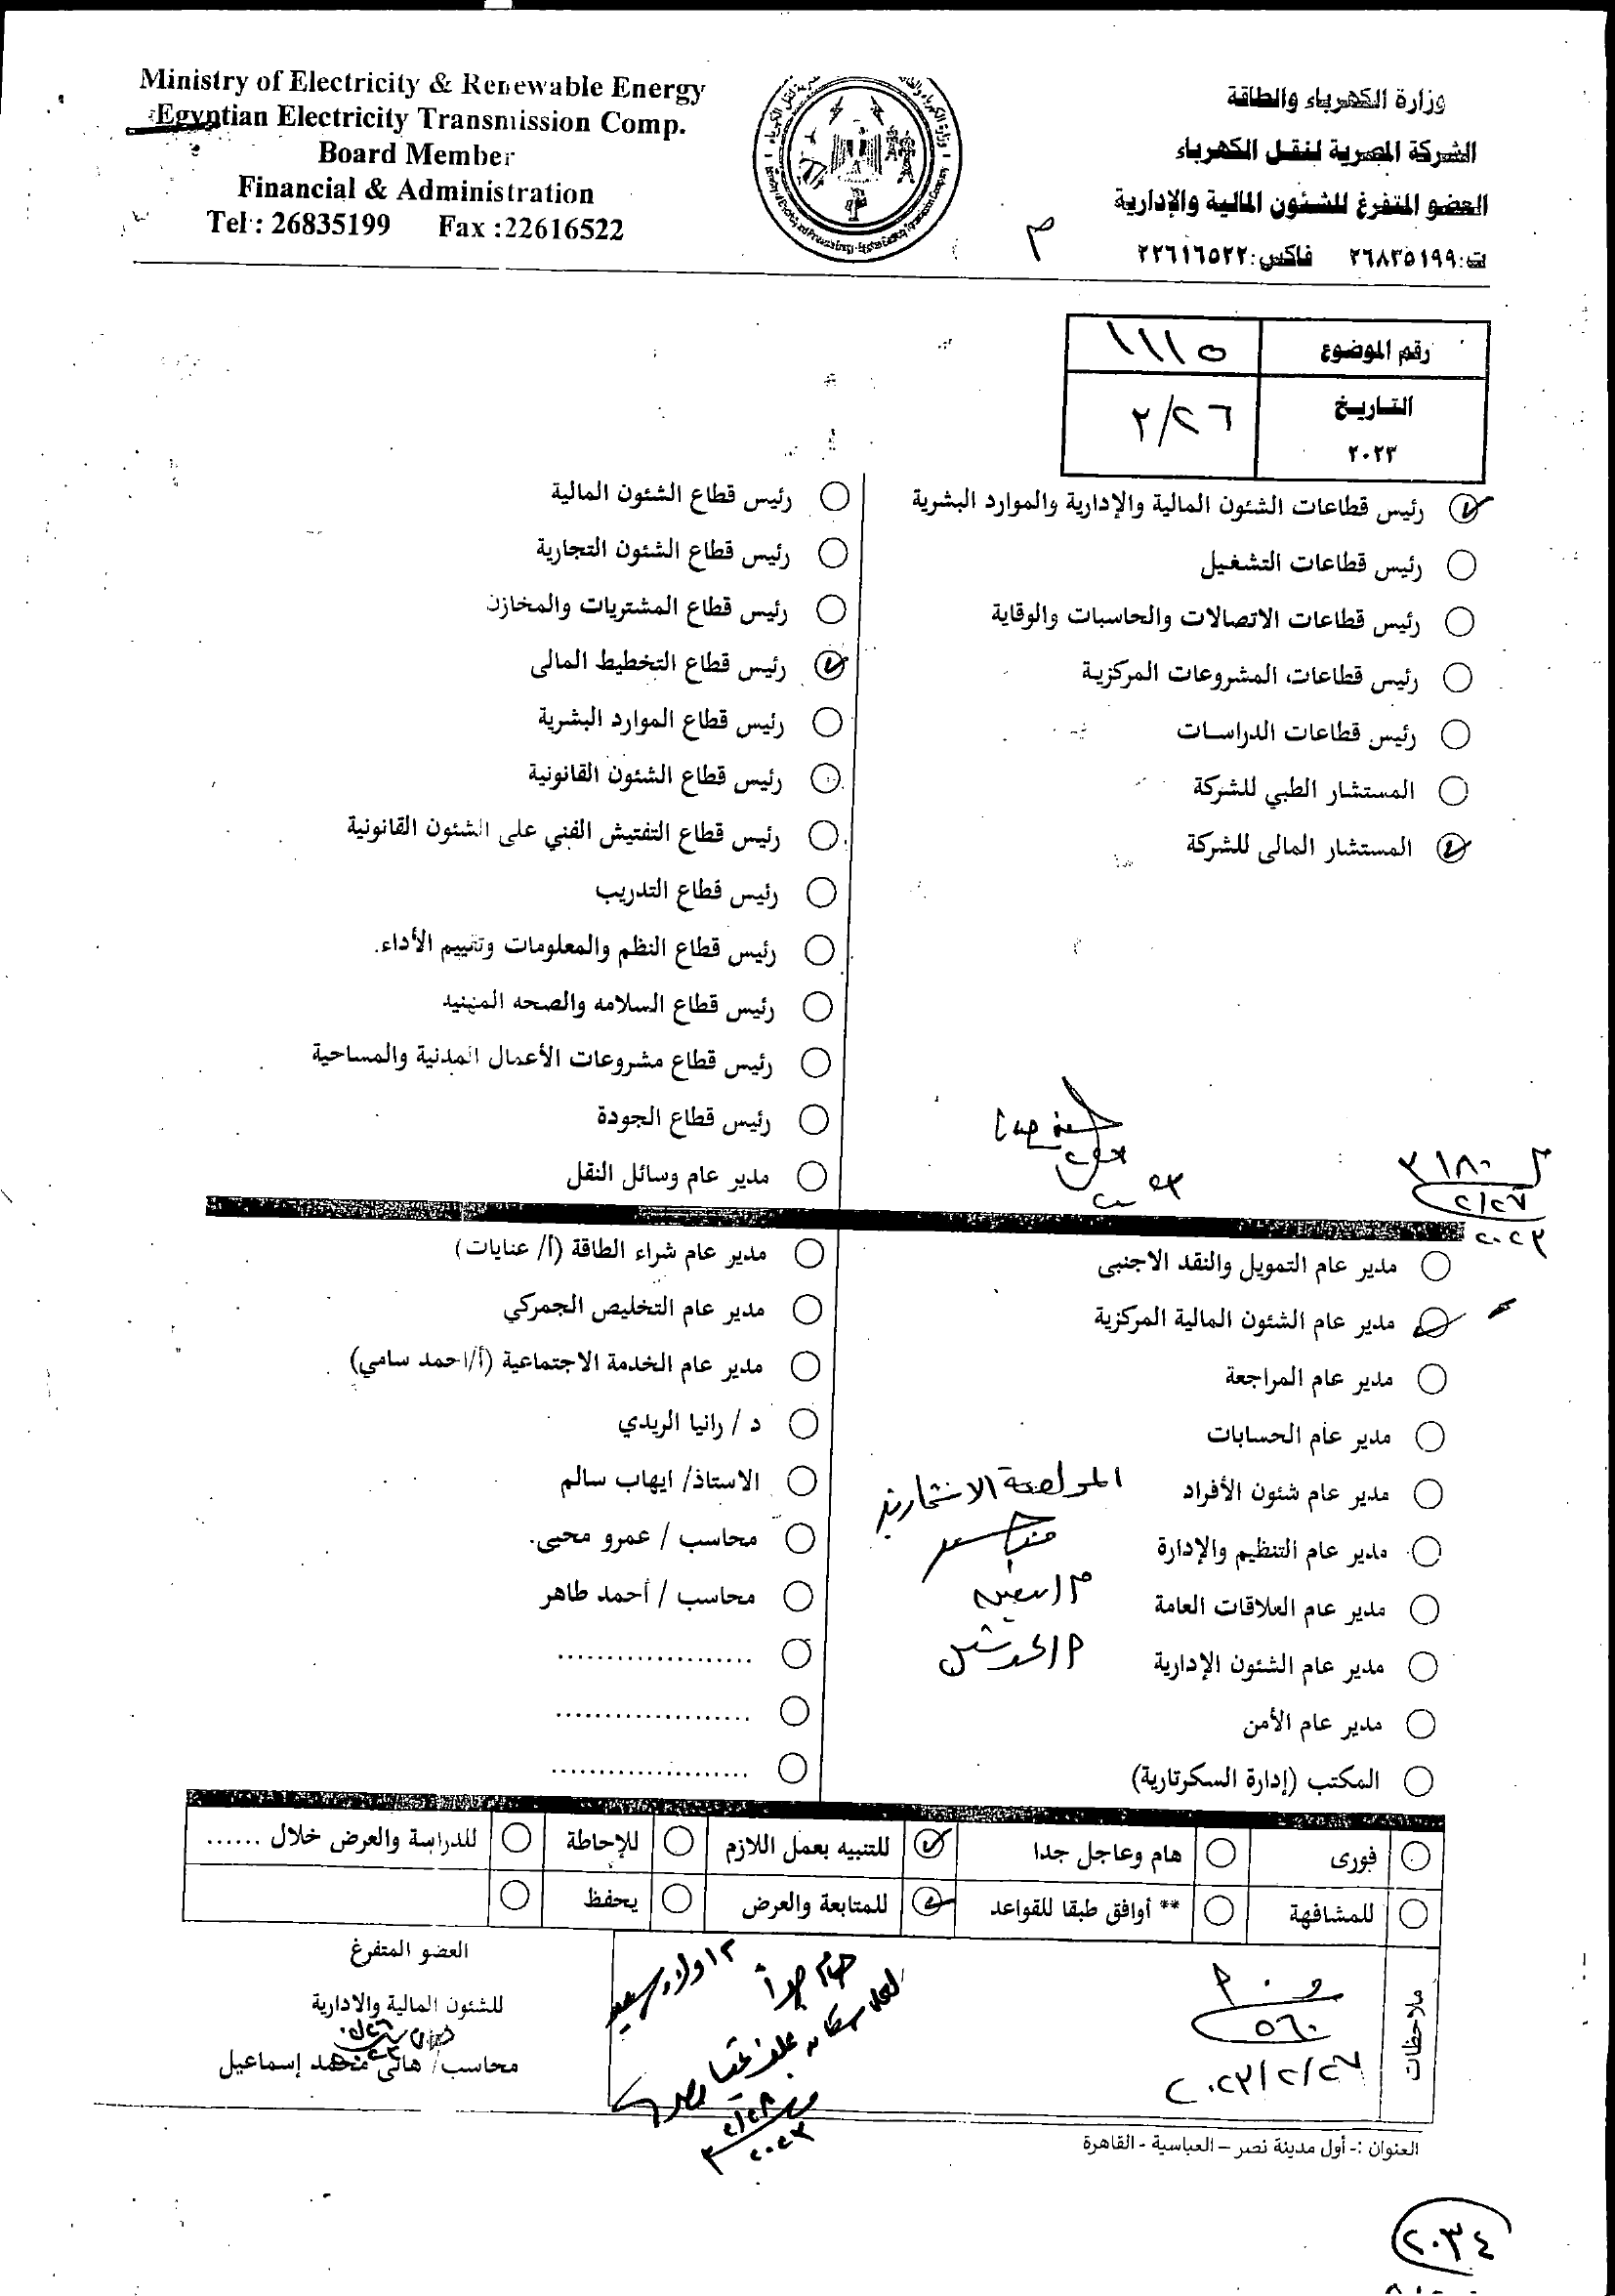 Ministry of Electricity & Renewable Energy
Egyptian Electricity Transmission Comp.
Board Member
Financial & Administration
Tel : 26835199 Fax :22616522
وزارة الكهرباء والطاقة
الشركة المصرية لنقل الكهرباء
العضو المتفرغ للشئون المالية والإدارية
ت:٢٦٨٣٥١٩٩ فاكس:٢٢٦١٦٥٢٢
م
رقم الموضوع ١١١٥
التاريخ ٢/٢٦
٢٠٢٣
رئيس قطاعات الشئون المالية والإدارية والموارد البشرية
رئيس قطاعات التشغيل
رئيس قطاعات الاتصالات والحاسبات والوقاية
رئيس قطاعات المشروعات المركزية
رئيس قطاعات الدراسات
المستشار الطبي للشركة
المستشار المالى للشركة
رئيس قطاع الشئون المالية
رئيس قطاع الشئون التجارية
رئيس قطاع المشتريات والمخازن
رئيس قطاع التخطيط المالى
رئيس قطاع الموارد البشرية
رئيس قطاع الشئون القانونية
رئيس قطاع التفتيش الفني على الشئون القانونية
رئيس قطاع التدريب
رئيس قطاع النظم والمعلومات وتقييم الأداء.
رئيس قطاع السلامه والصحه المهنيه
رئيس قطاع مشروعات الأعمال المدنية والمساحية
رئيس قطاع الجودة
مدير عام وسائل النقل
٣١٨٠
٢/٢٧
٢٠٢٣
مدير عام التمويل والنقد الاجنبى
مدير عام الشئون المالية المركزية
مدير عام المراجعة
مدير عام الحسابات
مدير عام شئون الأفراد
مدير عام التنظيم والإدارة
مدير عام العلاقات العامة
مدير عام الشئون الإدارية
مدير عام الأمن
المكتب (إدارة السكرتارية)
مدير عام شراء الطاقة (أ/ عنايات)
مدير عام التخليص الجمركي
مدير عام الخدمة الاجتماعية (أ/احمد سامي)
د / رانيا الريدي
الاستاذ/ ايهاب سالم
محاسب / عمرو محيى.
محاسب / أحمد طاهر
....................
....................
....................
فورى هام وعاجل جدا للتنبيه بعمل اللازم للإحاطة للدراسة والعرض خلال ......
للمشافهة ** أوافق طبقا للقواعد للمتابعة والعرض يحفظ
ملاحظات
٥٦٠
٢٠٢٣/٢/٢٧
هام جداً
٢/٢٨
٢٠٢٣
العضو المتفرغ
للشئون المالية والادارية
محاسب/ هانى محمد إسماعيل
العنوان :- أول مدينة نصر – العباسية - القاهرة
٢٠٣٤